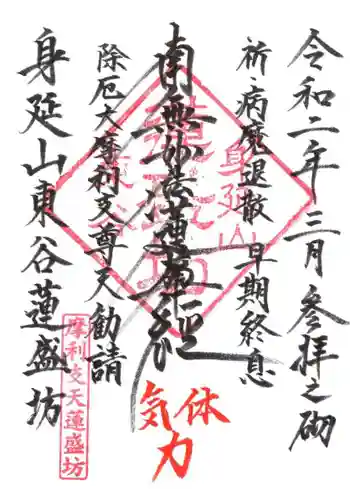 令和二年三月参拝之砌
祈・病魔退散 早期終息
南無妙法蓮華経
除厄大摩利支尊天 勧請
身延山東谷蓮盛坊
体力
気
身延山
摩利支天蓮盛坊